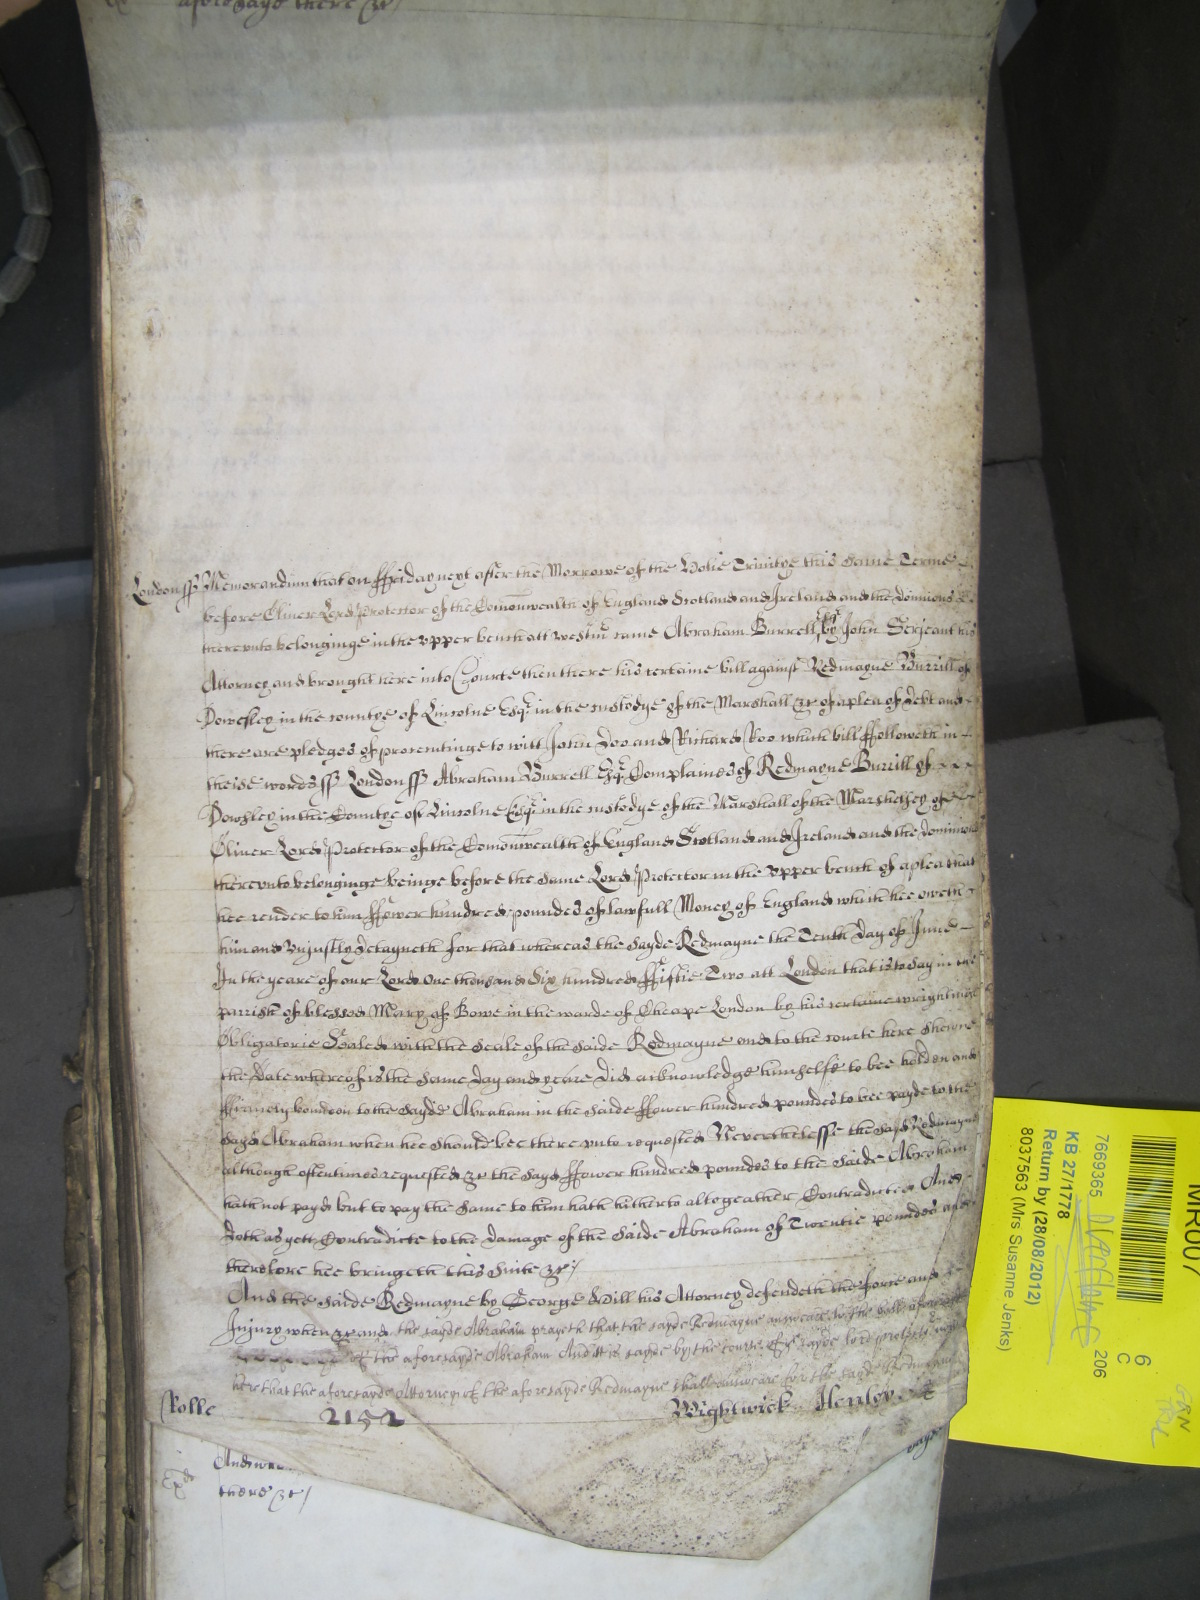 aforesayd there &c
London ss Memorandum that on ffriday next after the Morrowe of the Holie Trinitye this same Terme
before Oliver Lord Protector of the Comonwealth of England Scotland and Ireland and the dominions
thereunto belonginge in the upper bench att Westmr came Abraham Burrell Esqr by John Serjeant his
Attorney and brought here into Courte then there his certaine bill against Redmayne Burrill of
Dowesley in the countye of Lincolne Esqr in the custodye of the Marshall &c of a plea of Debt and
there are pledges of prosecutinge to witt John Doo and Richard Roo which bill ffolloweth in
theise words ss London ss Abraham Burrell Esqr Complaines of Redmayne Burrill of
Dowsley in the Countye of Lincolne Esqr in the custodye of the Marshall of the Marshelsey of
Oliver Lord Protector of the Comonwealth of England Scotland and Ireland and the dominions
thereunto belonginge beinge before the same Lord Protector in the upper bench of a plea that
hee render to him ffower hundred poundes of lawfull Money of England which hee oweth
him and Unjustly detayneth for that whereas the sayde Redmayne the Tenth day of June
In the yeare of our Lord One thousand Six hundred ffiftie Two att London that is to say in the
parrish of blessed Mary of Bowe in the warde of Cheape London by his certaine wrightinge
Obligatorie Sealed with the Seale of the saide Redmayne and to the courte here shewne
the Date whereof is the same day and yeare did acknowledge himselfe to bee holden and
ffirmely bounden to the sayde Abraham in the saide ffower hundred poundes to bee payde to the
sayd Abraham when hee should bee there unto requested Neverthelesse the sayd Redmayne
although oftentimes requested &c the sayd ffower hundred poundes to the saide Abraham
hath not payd but to pay the same to him hath hitherto altogeather Contradicted And
doth as yett Contradicte to the damage of the saide Abraham of Twentie poundes and
therefore hee bringeth this Suite &c
And the saide Redmayne by George Will his Attorney defendeth the force and
Injury when &c and the sayde Abraham prayeth that the sayde Redmayne answeare to the bill aforesayde
of the aforesayde Abraham And it is sayde by the courte of the sayde lord protector
here that the aforesayde Attorney of the aforesayde Redmayne shall answeare for the sayde Redmayne
Rolle 2152 Wightwick Henley
there &c
MR007
6
C
7669365 206
KB 27/1778
Return by (28/08/2012)
8037563 (Mrs Susanne Jenks)